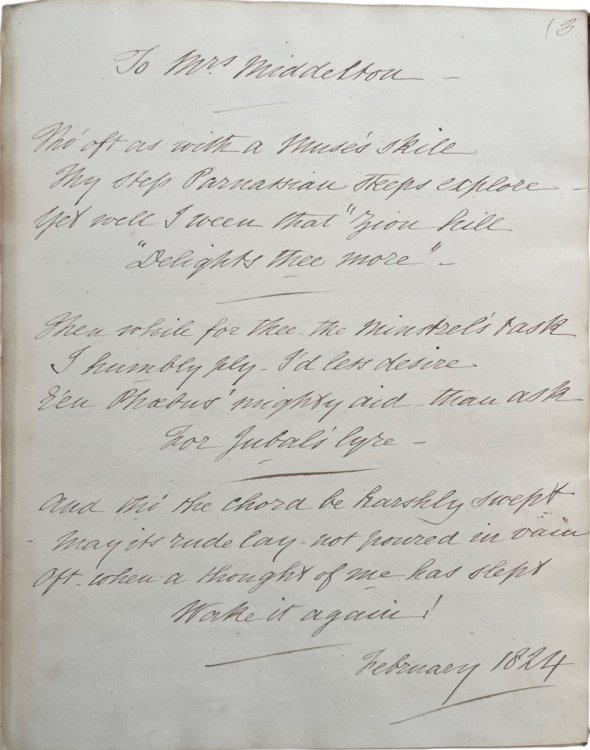 13
To Mrs Middelton –
Tho' oft as with a Muse's skill
Thy step Parnassian steeps explore –
Yet well I ween that "Zion hill
"Delights thee more" –
Then while for thee the Minstrel's task
I humbly ply – I'd less desire
E'en Phœbus' mighty aid than ask
For Jubal's lyre –
And tho' the chord be harshly swept
May its rude lay – not poured in vain
Oft – when a thought of me has slept
Wake it again!
February 1824